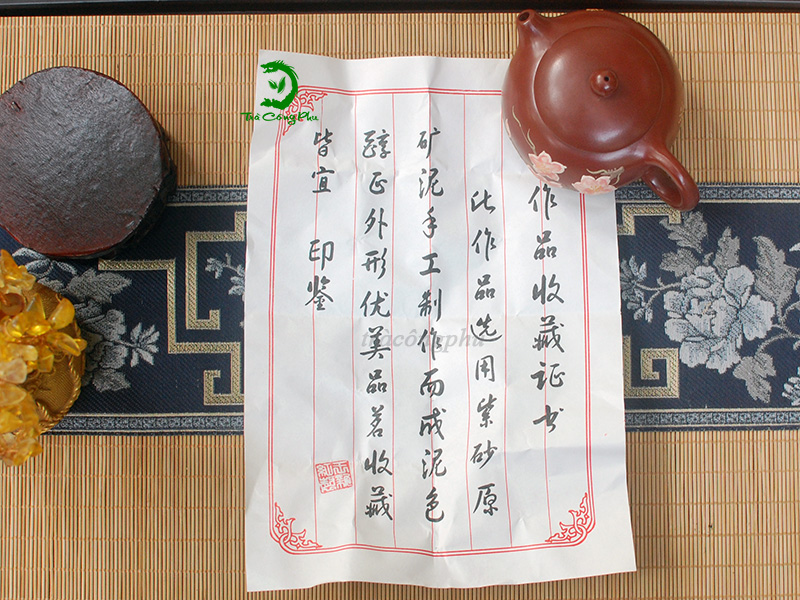 作品收藏证书
此作品选用紫砂原
矿泥手工制作而成泥色
醇正外形优美品茗收藏
皆宜 印鉴
Trà Công Phu
tracôngphu